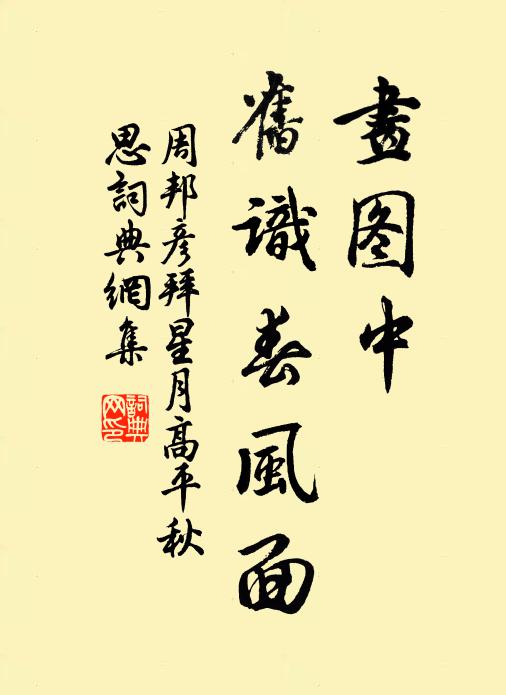 畫图中
舊識春風面
周邦彦拜星月高平秋
思詞典網集
詞典网印